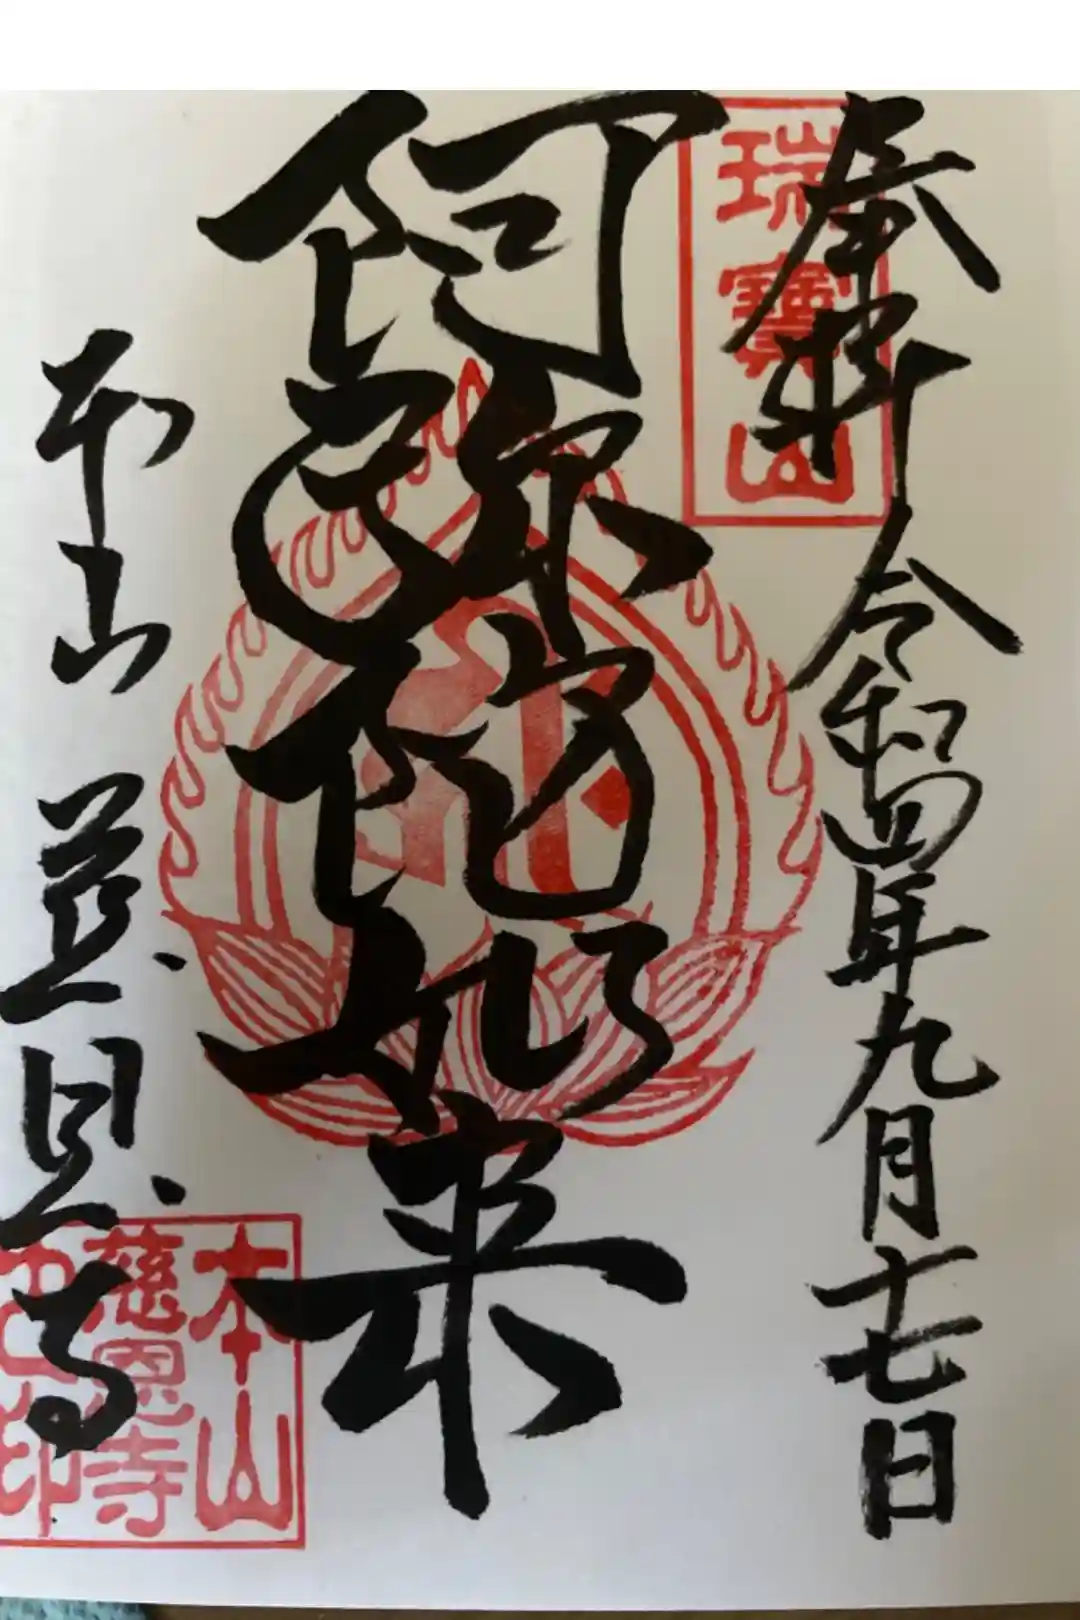 奉拝
令和四年九月十七日
瑞寳山
阿弥陀如来
本山
慈恩寺
本山
慈恩寺
印